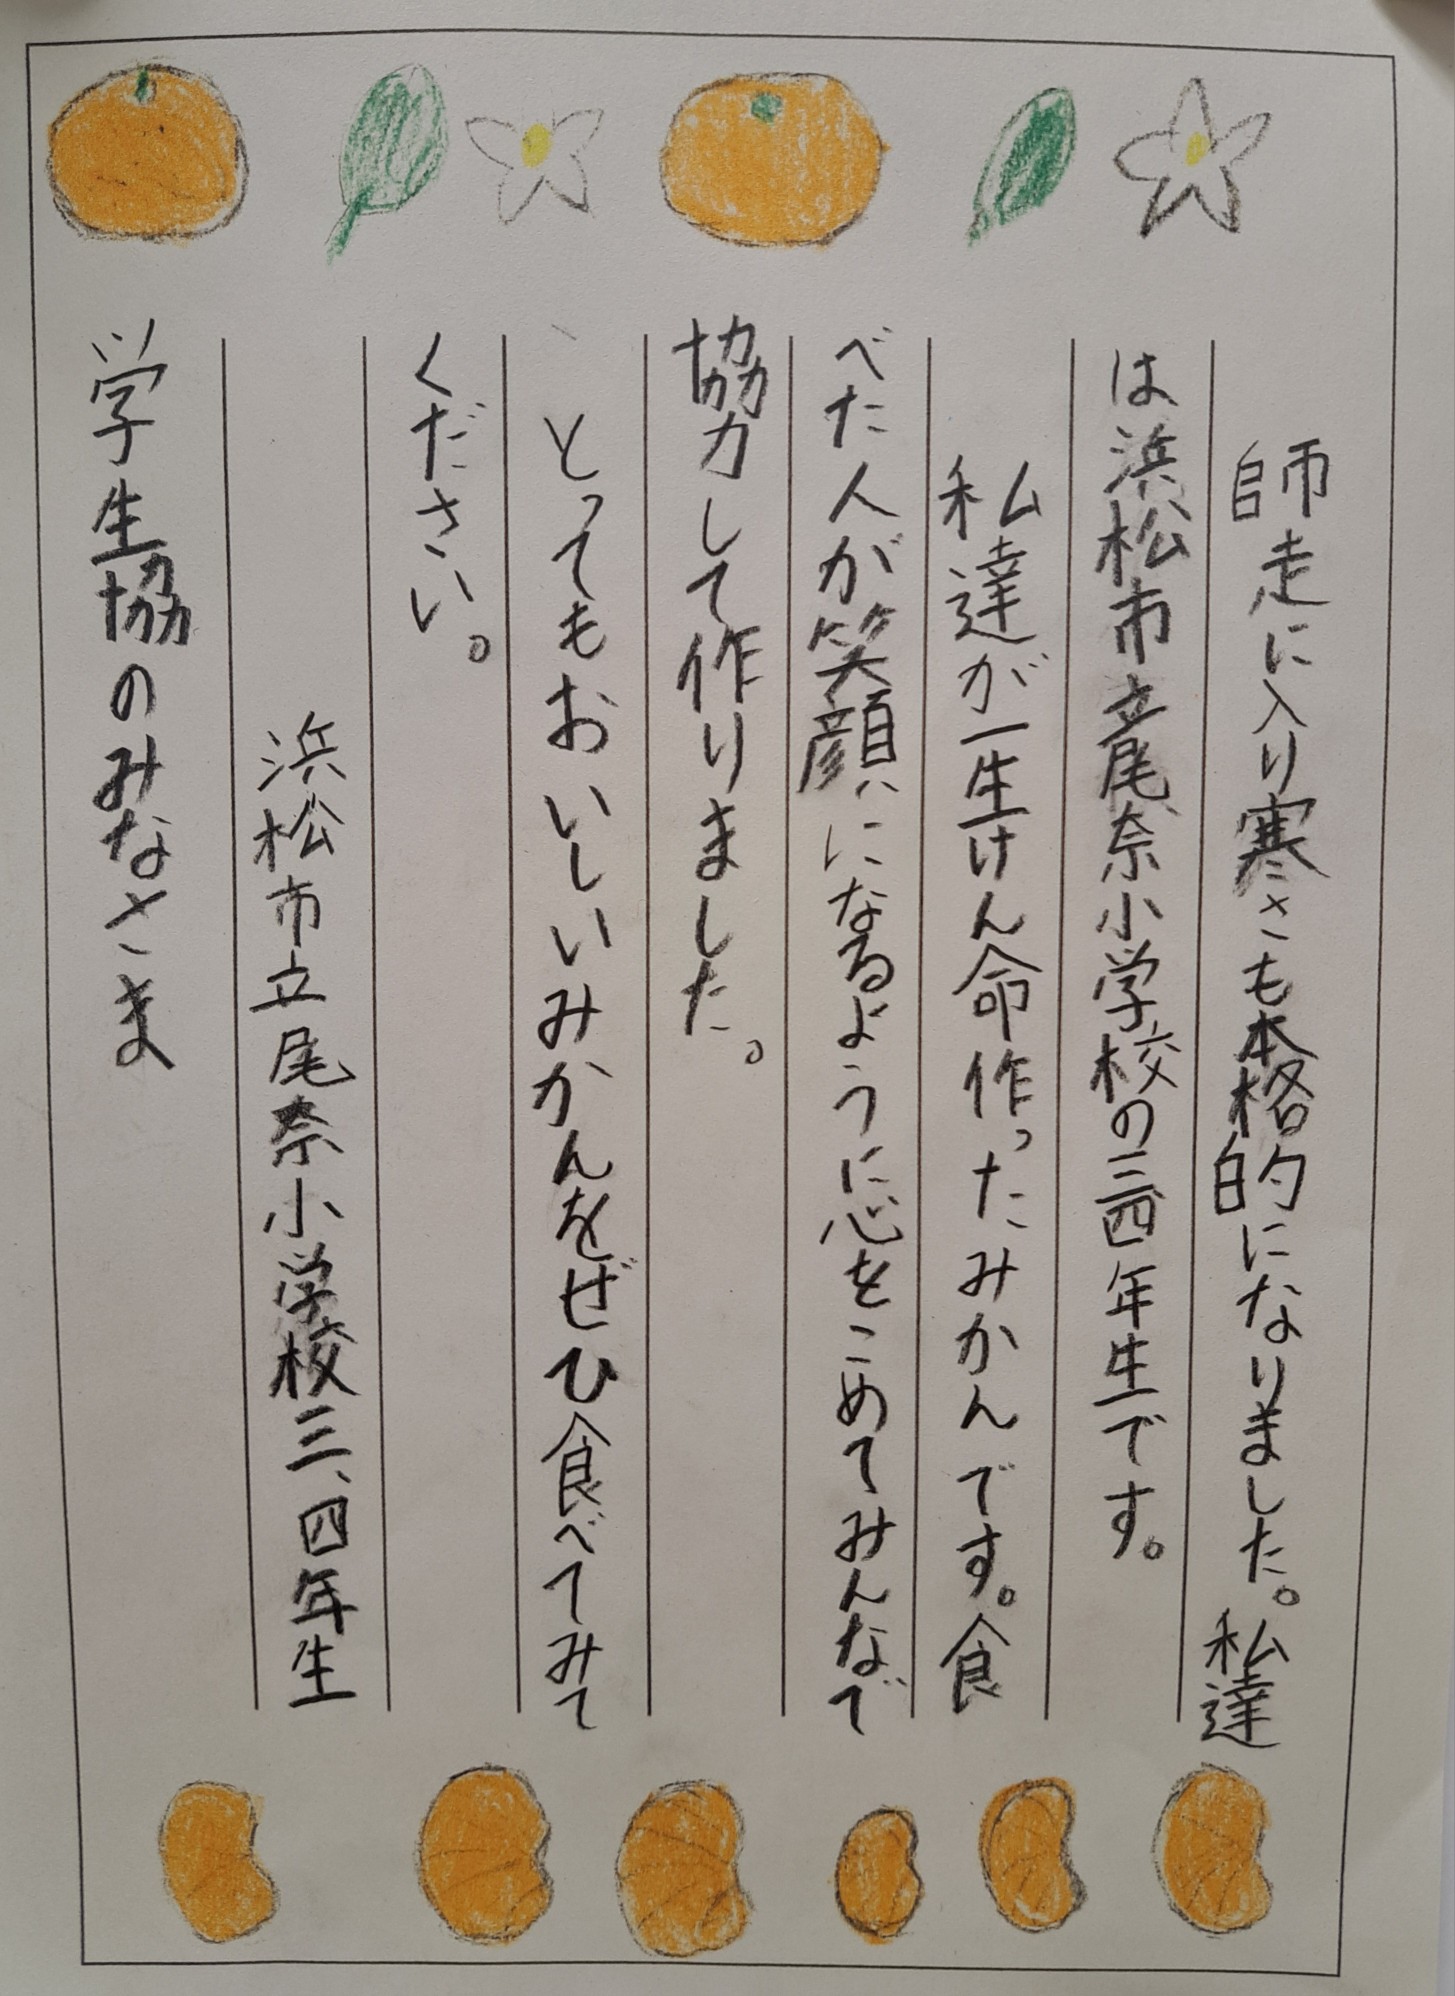 師走に入り寒さも本格的になりました。私達
は浜松市立尾奈小学校の三四年生です。
私達が一生けん命作ったみかんです。食
べた人が笑顔になるように心をこめてみんなで
協力して作りました。
とってもおいしいみかんをぜひ食べてみて
ください。
浜松市立尾奈小学校三、四年生
学生協のみなさま